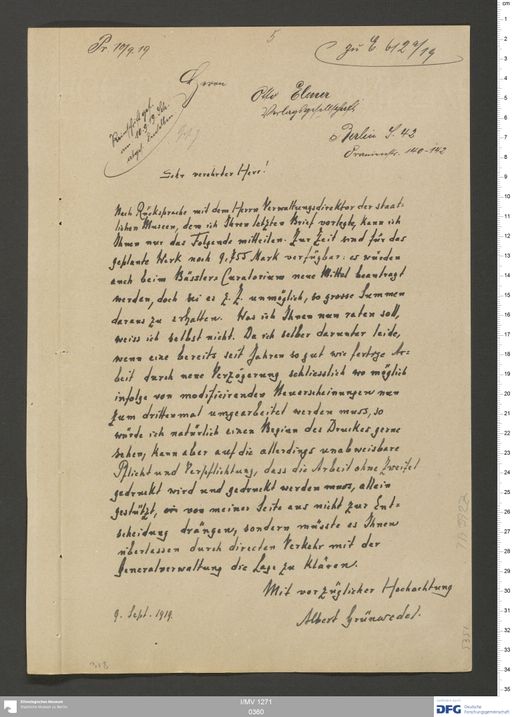 Pr. 10/9. 19
5
zu E 612 a/19
Herrn
Otto Elsner
Verlagsgesellschaft
Berlin S. 42
Oranienstr. 140-142
Sehr verehrter Herr!
Nach Rücksprache mit dem Herrn Verwaltungsdirektor der staat-
lichen Museen, dem ich Ihren letzten Brief vorlegte, kann ich
Ihnen nur das Folgende mitteilen. Zur Zeit sind für das
geplante Werk noch 9.755 Mark verfügbar: es würden
auch beim Bässlers Curatorium neue Mittel beantragt
werden, doch sei es z. Z. unmöglich, so grosse Summen
daraus zu erhalten. Was ich Ihnen nun raten soll,
weiss ich selbst nicht. Da ich selber darunter leide,
wenn eine bereits seit Jahren so gut wie fertige Ar-
beit durch neue Verzögerung schliesslich wo möglich
infolge von modifizirenden Neuerscheinungen nun
zum drittenmal umgearbeitet werden muss, so
würde ich natürlich einen Beginn des Druckes gerne
sehen, kann aber auf die allerdings unabweisbare
Pflicht und Verpflichtung, dass die Arbeit ohne Zweifel
gedruckt wird und gedruckt werden muss, allein
gestützt, von meiner Seite aus nicht zur Ent-
scheidung drängen, sondern müsste es Ihnen
überlassen durch directen Verkehr mit der
Generalverwaltung die Lage zu klären.
Mit vorzüglicher Hochachtung
9. Sept. 1919.
Albert Grünwedel.
Ethnologisches Museum
Staatliche Museen zu Berlin
I/MV 1271
0360
DFG
Deutsche
Forschungsgemeinschaft